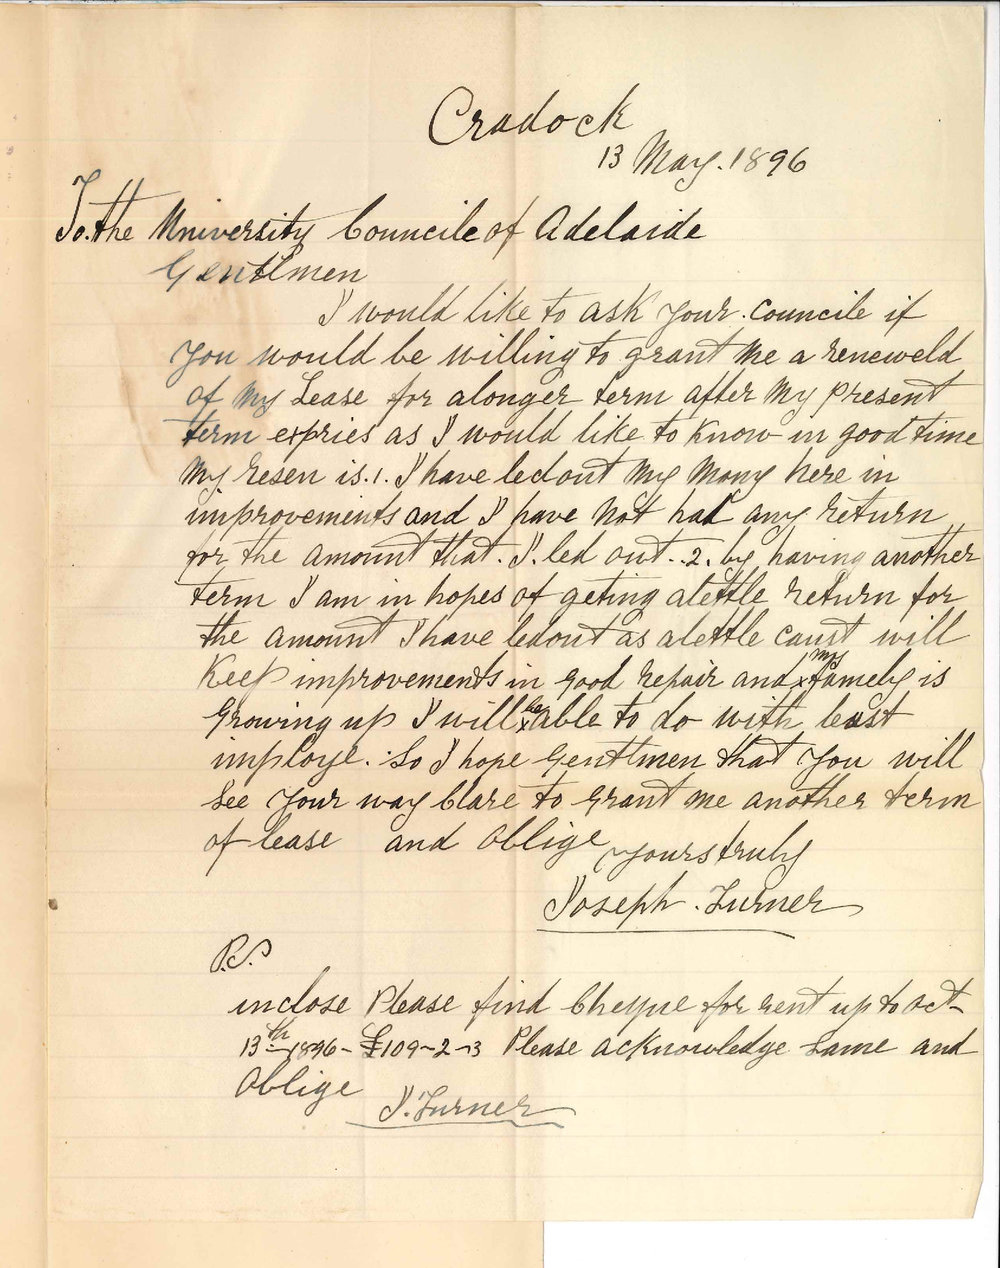 Cradock
13 May. 1896
To. the University Councile of Adelaide
Gentlmen
I would like to ask your. Councile if
you would be willing to grant me a reneweld
of my Lease for alonger term after my present
term expries as I would like to know in good time
my resen is. 1. I have ledout my mony here in
improvements and I have not had any return
for the amount that. I. led out. .2. by having another
term I am in hopes of geting alettle return for
the amount I have ledout as alettle caust will
Keep improvements in good repair and x my famely is
growing up I will x be able to do with least
imploye. So I hope Gentlmen that you will
see your way Clare to grant me another term
of lease and oblige
yours truly
Joseph. Turner
P.S.
inclose Please find Cheque for rent up to oct-
13th 1896- £109-2-3 Please acknowledge same and
oblige
J. Turner